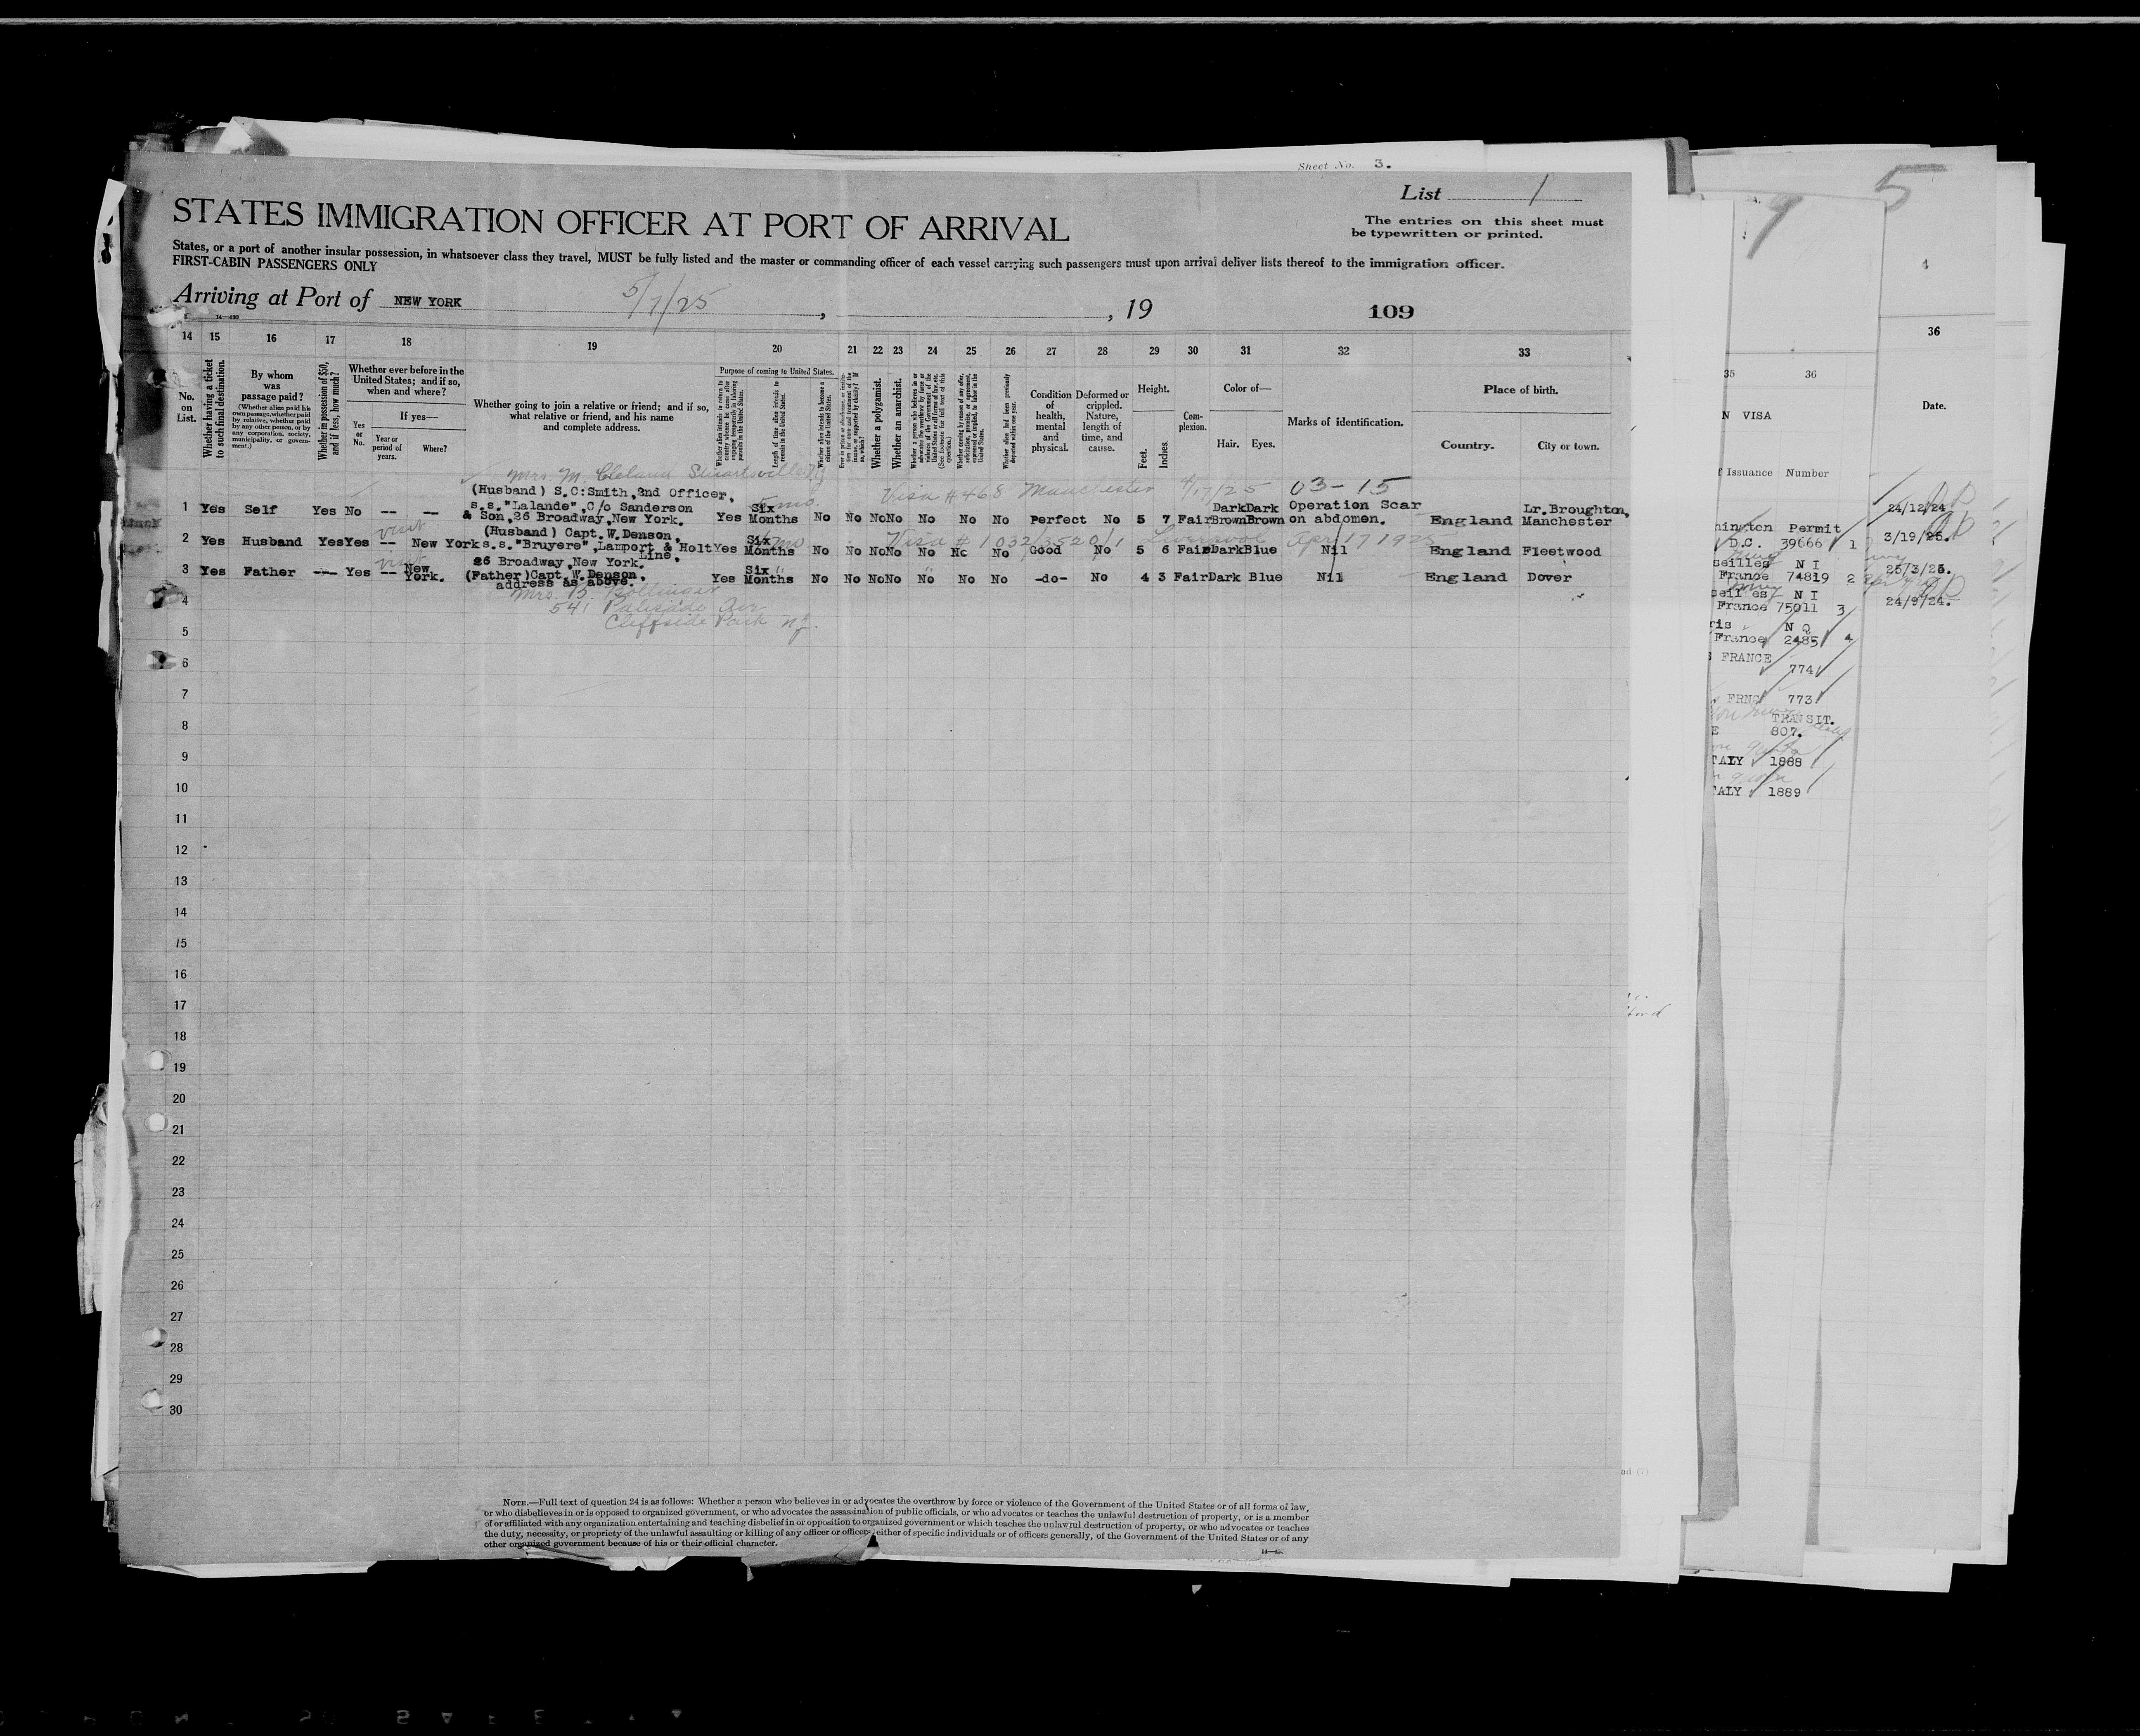 Sheet No. 3.
List 1
STATES IMMIGRATION OFFICER AT PORT OF ARRIVAL
The entries on this sheet must
be typewritten or printed.
States, or a port of another insular possession, in whatsoever class they travel, MUST be fully listed and the master or commanding officer of each vessel carrying such passengers must upon arrival deliver lists thereof to the immigration officer.
FIRST-CABIN PASSENGERS ONLY
Arriving at Port of NEW YORK 5/1/25 , , 19 109
14 15 16 17 18 19 20 21 22 23 24 25 26 27 28 29 30 31 32 33
No. on List.
Whether having a ticket to such final destination.
By whom was passage paid?
(Whether alien paid his own passage, whether paid by relative, whether paid by any other person, or by any corporation, society, municipality, or government.)
Whether in possession of $50, and if less, how much?
Whether ever before in the United States; and if so, when and where?
Yes or No.
If yes—
Year or period of years.
Where?
Whether going to join a relative or friend; and if so, what relative or friend, and his name and complete address.
Purpose of coming to United States.
Length of time alien intends to remain in the United States.
Whether alien intends to become a citizen of the United States.
Whether a polygamist.
Whether an anarchist.
Condition of health, mental and physical.
Deformed or crippled. Nature, length of time, and cause.
Height.
Feet. Inches.
Complexion.
Color of—
Hair. Eyes.
Marks of identification.
Place of birth.
Country. City or town.
Mrs. M. Cleland Stuartsville NJ
Visa #468 Manchester 4/17/25 03-15
(Husband) S.C:Smith,2nd Officer,
s.s."Lalande",C/o Sanderson
& Son,26 Broadway,New York.
1 Yes Self Yes No -- -- Yes Six Months 5 mo. No No No No No No No Perfect No 5 7 Fair Dark Brown Dark Brown Operation Scar on abdomen. England Lr.Broughton, Manchester
visit
Visa # 1032/3520/1 Liverpool Apr 17 1925
(Husband) Capt.W.Denson,
s.s."Bruyere",Lamport & Holt Line,
26 Broadway,New York.
2 Yes Husband Yes Yes -- New York Yes Six Months mo No No No No No No No Good No 5 6 Fair Dark Blue Nil England Fleetwood
visit
(Father)Capt.W.Denson,
address as above.
3 Yes Father --- Yes -- New York. Yes Six Months No No No No No No No -do- No 4 3 Fair Dark Blue Nil England Dover
Mrs. B. Bollinger
541 Palisade Av
Cliffside Park NJ.
4
5
6
7
8
9
10
11
12
13
14
15
16
17
18
19
20
21
22
23
24
25
26
27
28
29
30
NOTE.—Full text of question 24 is as follows: Whether a person who believes in or advocates the overthrow by force or violence of the Government of the United States or of all forms of law,
or who disbelieves in or is opposed to organized government, or who advocates the assassination of public officials, or who advocates or teaches the unlawful destruction of property, or is a member
of or affiliated with any organization entertaining and teaching disbelief in or opposition to organized government or which teaches the unlawful destruction of property, or who advocates or teaches
the duty, necessity, or propriety of the unlawful assaulting or killing of any officer or officers, either of specific individuals or of officers generally, of the Government of the United States or of any
other organized government because of his or their official character.
9
35 36
N VISA
Issuance Number
Permit
D.C. 39666 1
seilles N I
France 74819 2
N I
France 75011 3
ris N Q
France 2485 4
FRANCE
774
FRNC 773
TRANSIT.
E 807.
TALY 1888
TALY 1889
5
4
36
Date.
24/12/24
3/19/25.
25/3/25.
24/9/24.